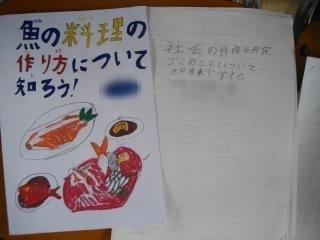 魚の料理の
作り方について
知ろう！
社会の自由研究
ゴミのことについて